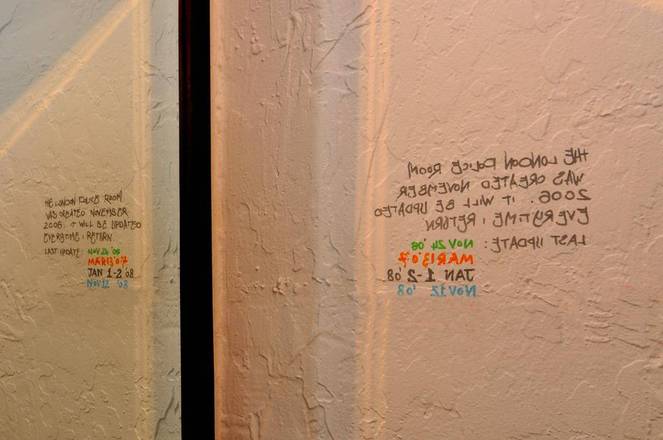 THE LONDON POLICE ROOM
WAS CREATED NOVEMBER
2006. IT WILL BE UPDATED
EVERYTIME I RETURN
LAST UPDATE: NOV 24 '06
MAR 13 '07
JAN 1-2 '08
NOV 12 '08
THE LONDON POLICE ROOM
WAS CREATED NOVEMBER
2006. IT WILL BE UPDATED
EVERYTIME I RETURN
LAST UPDATE: NOV 24 '06
MAR 13 '07
JAN 1-2 '08
NOV 12 '08